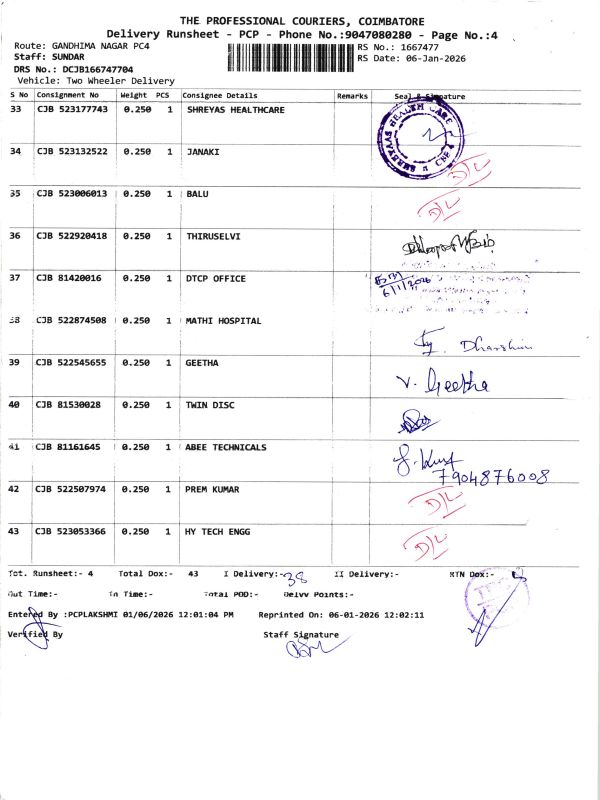 THE PROFESSIONAL COURIERS, COIMBATORE
Delivery Runsheet - PCP - Phone No.:9047080280 - Page No.:4
Route: GANDHIMA NAGAR PC4 RS No.: 1667477
Staff: SUNDAR RS Date: 06-Jan-2026
DRS No.: DCJB166747704
Vehicle: Two Wheeler Delivery
S No Consignment No Weight PCS Consignee Details Remarks Seal & Signature
33 CJB 523177743 0.250 1 SHREYAS HEALTHCARE
SHREYAAS HEALTH CARE CBE 4
34 CJB 523132522 0.250 1 JANAKI D/L
35 CJB 523006013 0.250 1 BALU D/L
36 CJB 522920418 0.250 1 THIRUSELVI
37 CJB 81420016 0.250 1 DTCP OFFICE
6/1/2026
38 CJB 522874508 0.250 1 MATHI HOSPITAL Dharshini
39 CJB 522545655 0.250 1 GEETHA V. Geetha
40 CJB 81530028 0.250 1 TWIN DISC
41 CJB 81161645 0.250 1 ABEE TECHNICALS
7904876008
42 CJB 522507974 0.250 1 PREM KUMAR D/L
43 CJB 523053366 0.250 1 HY TECH ENGG D/L
Tot. Runsheet:- 4 Total Dox:- 43 I Delivery:- 38 II Delivery:- RTN Dox:-
Out Time:- In Time:- Total POD:- Delvv Points:-
Entered By :PCPLAKSHMI 01/06/2026 12:01:04 PM Reprinted On: 06-01-2026 12:02:11
Verified By Staff Signature